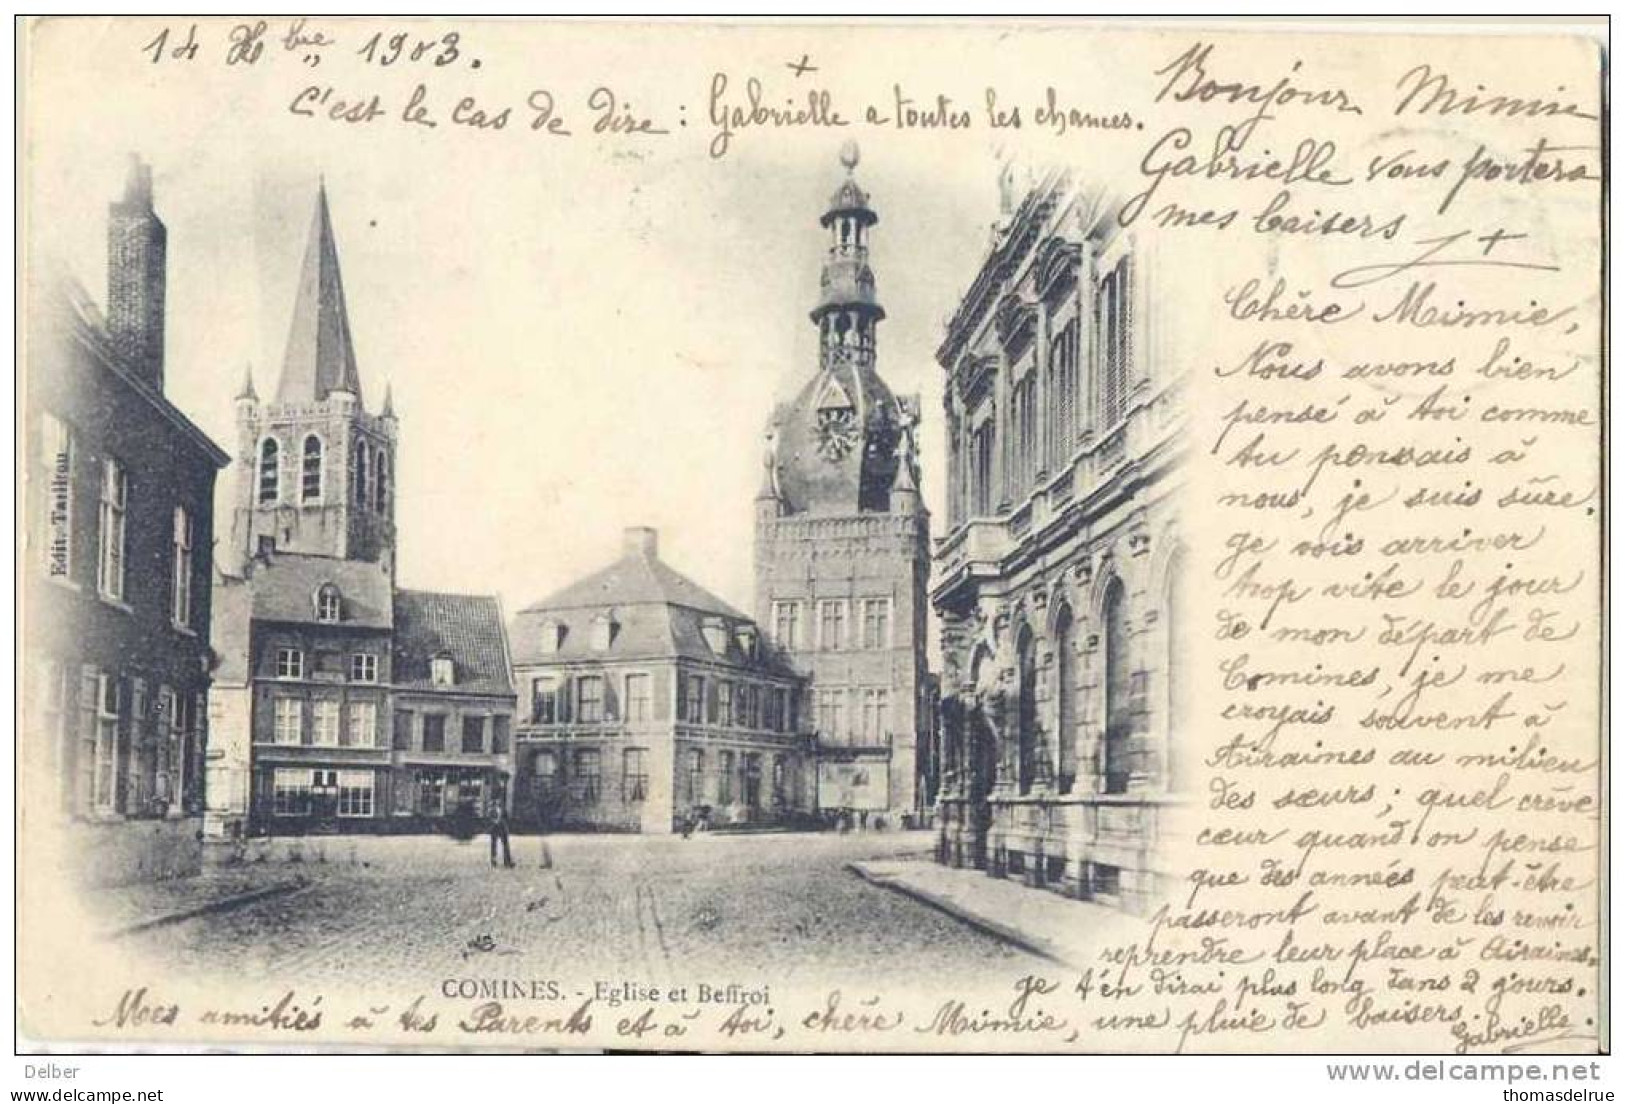 14 Xbre 1903.
c'est le cas de dire : Gabrielle a toutes les chances.
Bonjour Mimie
Gabrielle vous portera
mes baisers
Chère Mimie,
Nous avons bien
pensé à toi comme
tu pensais à
nous, je suis sûre.
Je vois arriver
trop vite le jour
de mon départ de
Comines, je me
croyais souvent à
Airaines au milieu
des sœurs ; quel crève
cœur quand on pense
que des années peut-être
passeront avant de les revoir
reprendre leur place à Airaines.
Je t'en dirai plus long dans 2 jours.
Mes amitiés à tes Parents et à toi, chère Mimie, une pluie de baisers.
Gabrielle.
Edit. Taillieu
COMINES. - Eglise et Beffroi
Delber
www.delcampe.net
thomasdelrue